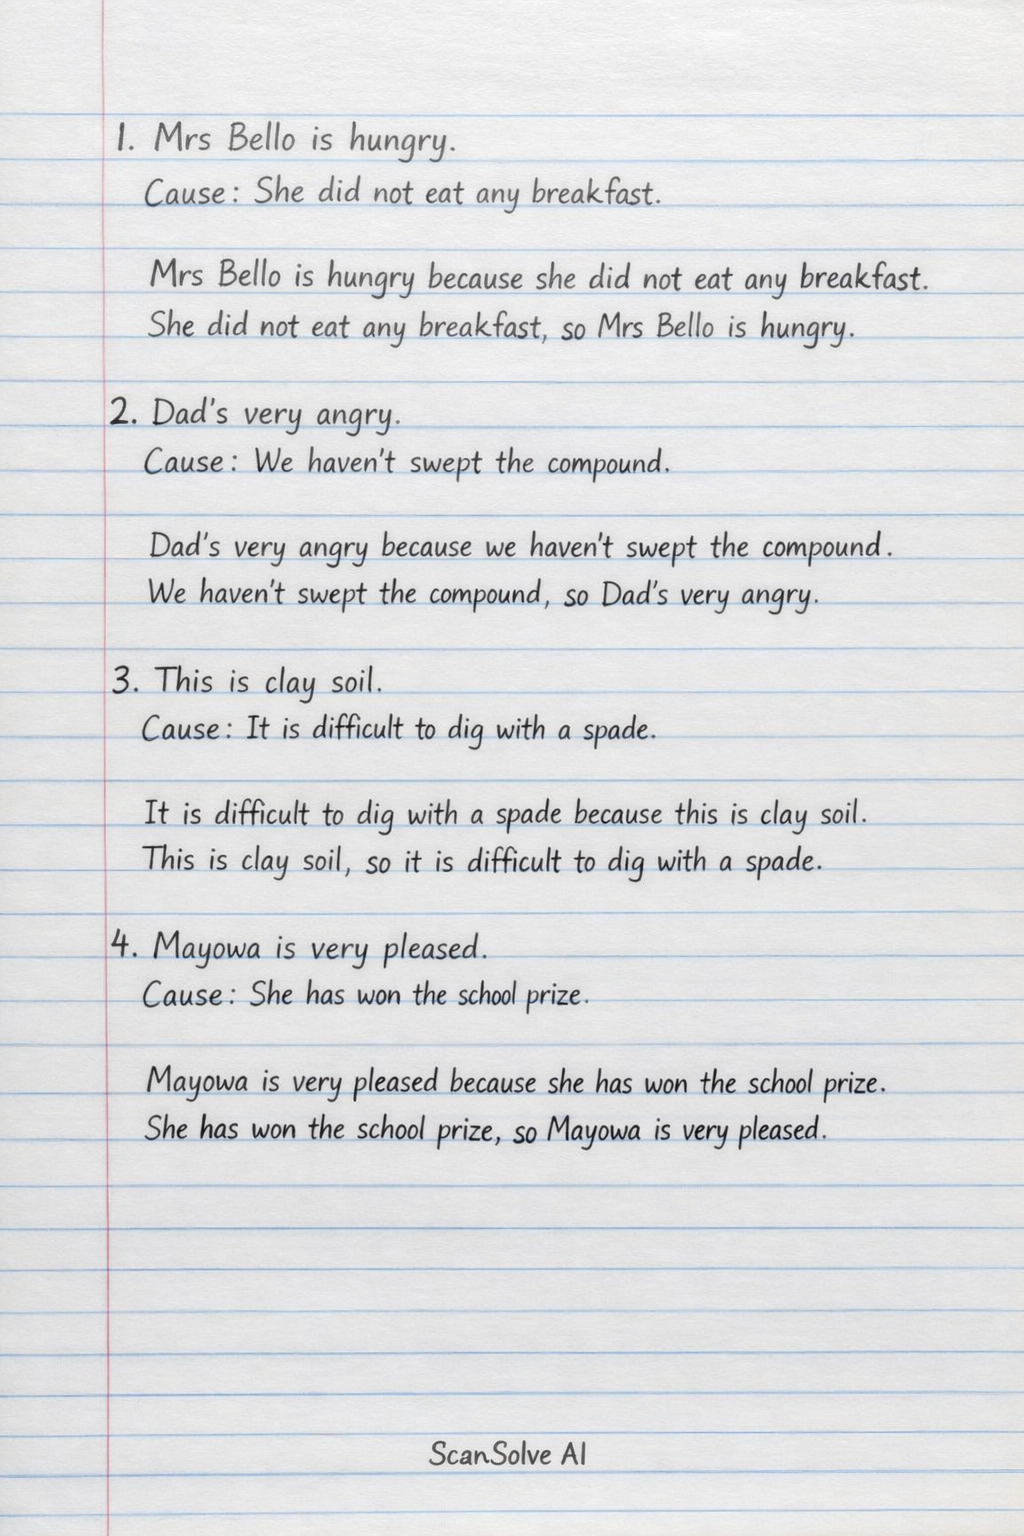 1. Mrs Bello is hungry.
Cause: She did not eat any breakfast.
Mrs Bello is hungry because she did not eat any breakfast.
She did not eat any breakfast, so Mrs Bello is hungry.
2. Dad's very angry.
Cause: We haven't swept the compound.
Dad's very angry because we haven't swept the compound.
We haven't swept the compound, so Dad's very angry.
3. This is clay soil.
Cause: It is difficult to dig with a spade.
It is difficult to dig with a spade because this is clay soil.
This is clay soil, so it is difficult to dig with a spade.
4. Mayowa is very pleased.
Cause: She has won the school prize.
Mayowa is very pleased because she has won the school prize.
She has won the school prize, so Mayowa is very pleased.
ScanSolve AI